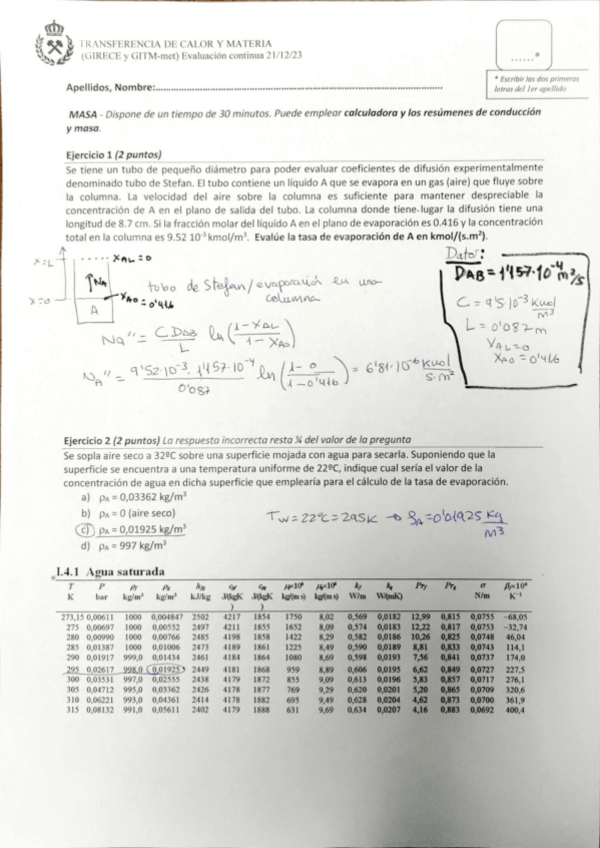 TRANSFERENCIA DE CALOR Y MATERIA
(GIRECE y GITM-met) Evaluación continua 21/12/23
......*
* Escribir las dos primeras
letras del 1er apellido
Apellidos, Nombre:...............................................................................................
MASA - Dispone de un tiempo de 30 minutos. Puede emplear calculadora y los resúmenes de conducción
y masa.
Ejercicio 1 (2 puntos)
Se tiene un tubo de pequeño diámetro para poder evaluar coeficientes de difusión experimentalmente
denominado tubo de Stefan. El tubo contiene un líquido A que se evapora en un gas (aire) que fluye sobre
la columna. La velocidad del aire sobre la columna es suficiente para mantener despreciable la
concentración de A en el plano de salida del tubo. La columna donde tiene lugar la difusión tiene una
longitud de 8.7 cm. Si la fracción molar del líquido A en el plano de evaporación es 0.416 y la concentración
total en la columna es 9.52 10⁻³ kmol/m³. Evalúe la tasa de evaporación de A en kmol/(s.m²).
Dator:
DAB = 1'157·10⁻⁴ m²/s
C = 9'5·10⁻³ Kmol/m³
L = 0'087 m
XAL = 0
XA0 = 0'416
X=L
XAL = 0
NA
X=0
A
XA0 = 0'416
tubo de Stefan/evaporación en una
columna
NA'' = C DAB / L ln (1-XAL / 1-XA0)
NA'' = 9'52·10⁻³ · 1'157·10⁻⁴ / 0'087 ln (1-0 / 1-0'416) = 6'81·10⁻⁶ Kmol / s·m²
Ejercicio 2 (2 puntos) La respuesta incorrecta resta ¼ del valor de la pregunta
Se sopla aire seco a 32ºC sobre una superficie mojada con agua para secarla. Suponiendo que la
superficie se encuentra a una temperatura uniforme de 22ºC, indique cual sería el valor de la
concentración de agua en dicha superficie que emplearía para el cálculo de la tasa de evaporación.
a) ρA = 0,03362 kg/m³
b) ρA = 0 (aire seco)
c) ρA = 0,01925 kg/m³
d) ρA = 997 kg/m³
Tw = 22ºC = 295K → ρA = 0'01925 Kg/m³
I.4.1 Agua saturada
T P ρf ρg hfg cpf cpg μf·10⁶ μg·10⁶ kf kg Prf Prg σ βf·10⁶
K bar kg/m³ kg/m³ kJ/kg J/(kgK) J/(kgK) kg/(m s) kg/(m s) W/m W/(mK) N/m K⁻¹
273,15 0,00611 1000 0,004847 2502 4217 1854 1750 8,02 0,569 0,0182 12,99 0,815 0,0755 −68,05
275 0,00697 1000 0,00552 2497 4211 1855 1652 8,09 0,574 0,0183 12,22 0,817 0,0753 −32,74
280 0,00990 1000 0,00766 2485 4198 1858 1422 8,29 0,582 0,0186 10,26 0,825 0,0748 46,04
285 0,01387 1000 0,01006 2473 4189 1861 1225 8,49 0,590 0,0189 8,81 0,833 0,0743 114,1
290 0,01917 999,0 0,01434 2461 4184 1864 1080 8,69 0,598 0,0193 7,56 0,841 0,0737 174,0
295 0,02617 998,0 0,01925 2449 4181 1868 959 8,89 0,606 0,0195 6,62 0,849 0,0727 227,5
300 0,03531 997,0 0,02555 2438 4179 1872 855 9,09 0,613 0,0196 5,83 0,857 0,0717 276,1
305 0,04712 995,0 0,03362 2426 4178 1877 769 9,29 0,620 0,0201 5,20 0,865 0,0709 320,6
310 0,06221 993,0 0,04361 2414 4178 1882 695 9,49 0,628 0,0204 4,62 0,873 0,0700 361,9
315 0,08132 991,0 0,05611 2402 4179 1888 631 9,69 0,634 0,0207 4,16 0,883 0,0692 400,4